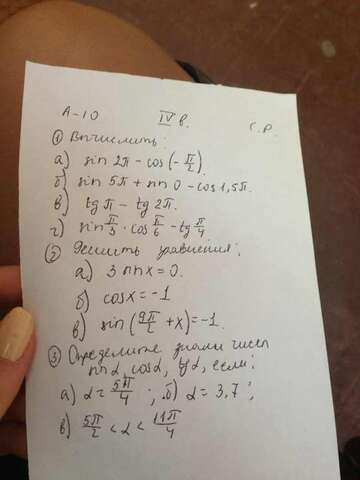 А-10 IV в. С.Р.
① Вычислить:
а) sin 2π - cos(-π/2).
б) sin 5π + sin 0 - cos 1,5π.
в) tg π - tg 2π.
г) sin π/3 · cos π/6 - tg π/4
② Решить уравнения:
а) 3 sin x = 0.
б) cos x = -1
в) sin (9π/2 + x) = -1.
③ Определите знаки чисел
sin α, cos α, tg α, если:
а) α = 5π/4 ; б) α = 3,7 ;
в) 5π/2 < α < 11π/4